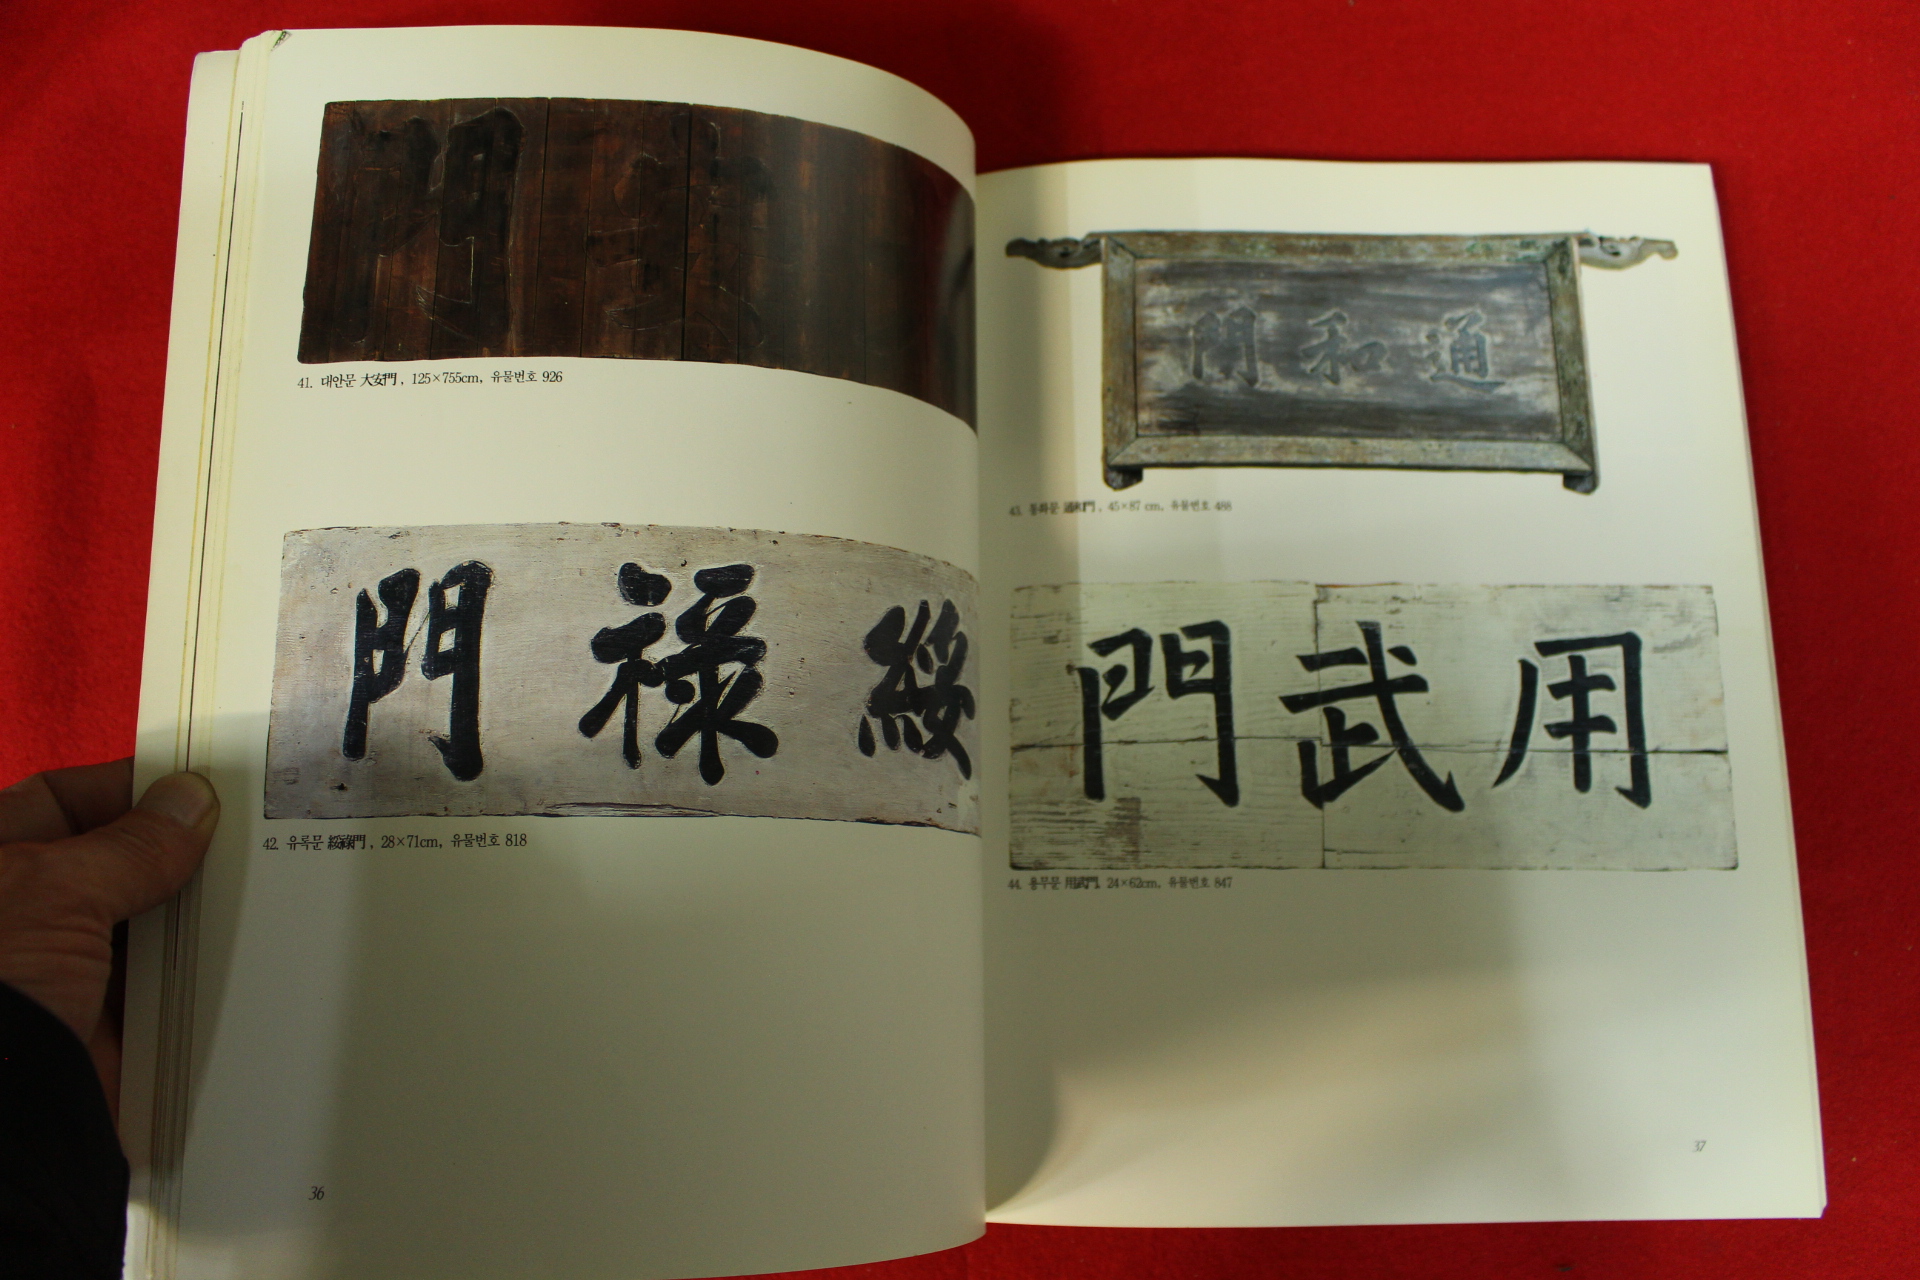 門安
41. 대안문 大安門, 125×755cm, 유물번호 926
門祿綏
42. 유록문 綏祿門, 28×71cm, 유물번호 818
36
門和通
43. 통화문 通和門, 45×87 cm, 유물번호 488
門武用
44. 용무문 用武門, 24×62cm, 유물번호 847
37